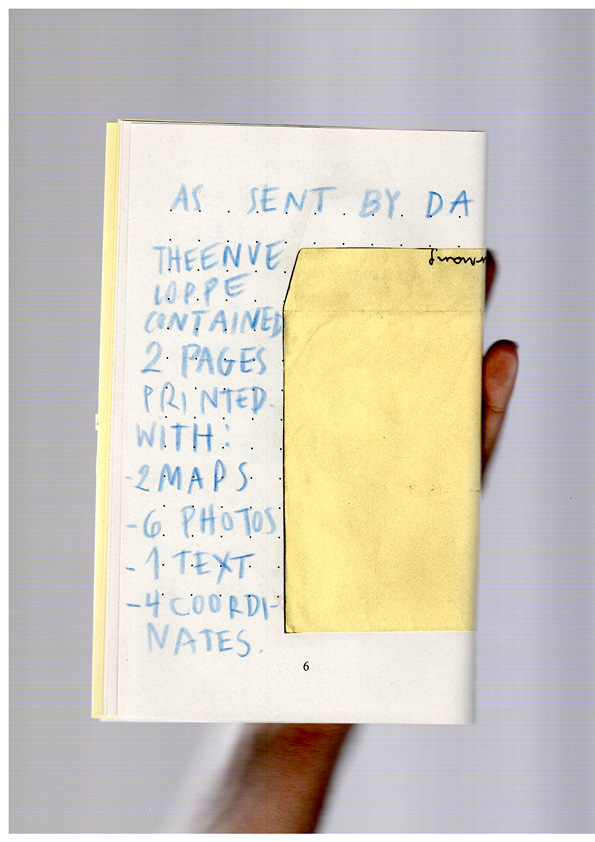 AS SENT BY DA
THEENVE
LOPPE
CONTAINED
2 PAGES
PRINTED
WITH:
-2 MAPS
-6 PHOTOS
-1 TEXT
-4 COORDI-
NATES.
6